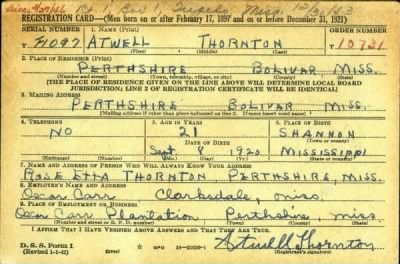 REGISTRATION CARD—(Men born on or after February 17, 1897 and on or before December 31, 1921)
SERIAL NUMBER 1. NAME (Print) ORDER NUMBER
ATWELL THORNTON 10731
(First) (Middle) (Last)
2. PLACE OF RESIDENCE (Print)
PERTHSHIRE BOLIVAR MISS.
(Number and street) (Town, township, village, or city) (County) (State)
[THE PLACE OF RESIDENCE GIVEN ON THE LINE ABOVE WILL DETERMINE LOCAL BOARD
JURISDICTION; LINE 2 OF REGISTRATION CERTIFICATE WILL BE IDENTICAL]
3. MAILING ADDRESS
PERTHSHIRE BOLIVAR MISS.
(Mailing address if other than place indicated on line 2. If same insert word same)
4. TELEPHONE 5. AGE IN YEARS 6. PLACE OF BIRTH
NO 21 SHANNON
DATE OF BIRTH (Town or county)
Sept 9 1920 MISSISSIPPI
(Exchange) (Number) (Mo.) (Day) (Yr.) (State or country)
7. NAME AND ADDRESS OF PERSON WHO WILL ALWAYS KNOW YOUR ADDRESS
ROSE ETTA THORNTON PERTHSHIRE, MISS.
8. EMPLOYER'S NAME AND ADDRESS
Oscar Carr Clarksdale, Miss.
9. PLACE OF EMPLOYMENT OR BUSINESS
Oscar Carr Plantation Perthshire, Miss.
(Number and street or R. F. D. number) (Town) (County) (State)
I AFFIRM THAT I HAVE VERIFIED ABOVE ANSWERS AND THAT THEY ARE TRUE.
D. S. S. Form 1 GPO Atwell Thornton
(Revised 1-1-42) (Registrant's signature)